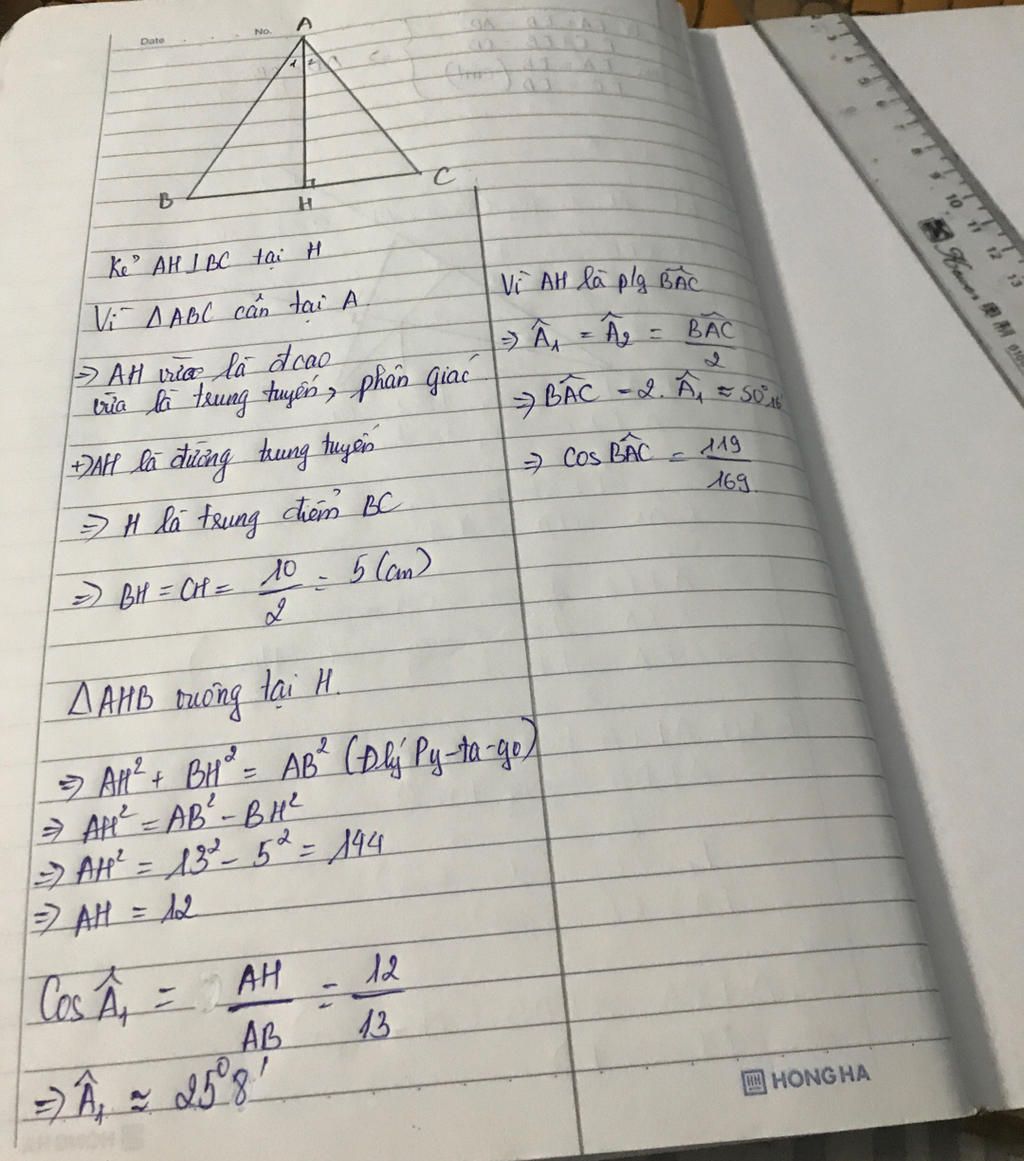 Date
No.
A
1 2
B
H
C
Kẻ AH⊥BC tại H
Vì ΔABC cân tại A
=> AH vừa là đcao
vừa là trung tuyến, phân giác
+) AH là đường trung tuyến
=> H là trung điểm BC
=> BH = CH = 10/2 = 5 (cm)
ΔAHB vuông tại H.
=> AH² + BH² = AB² (Đlý Py-ta-go)
=> AH² = AB² - BH²
=> AH² = 13² - 5² = 144
=> AH = 12
Cos Â₁ = AH/AB = 12/13
=> Â₁ ≈ 25°8'
Vì AH là p/g BÂC
=> Â₁ = Â₂ = BÂC/2
=> BÂC = 2. Â₁ ≈ 50°16'
=> Cos BÂC = 119/169.
HONG HA
4
5
6
9
10
11
12
13